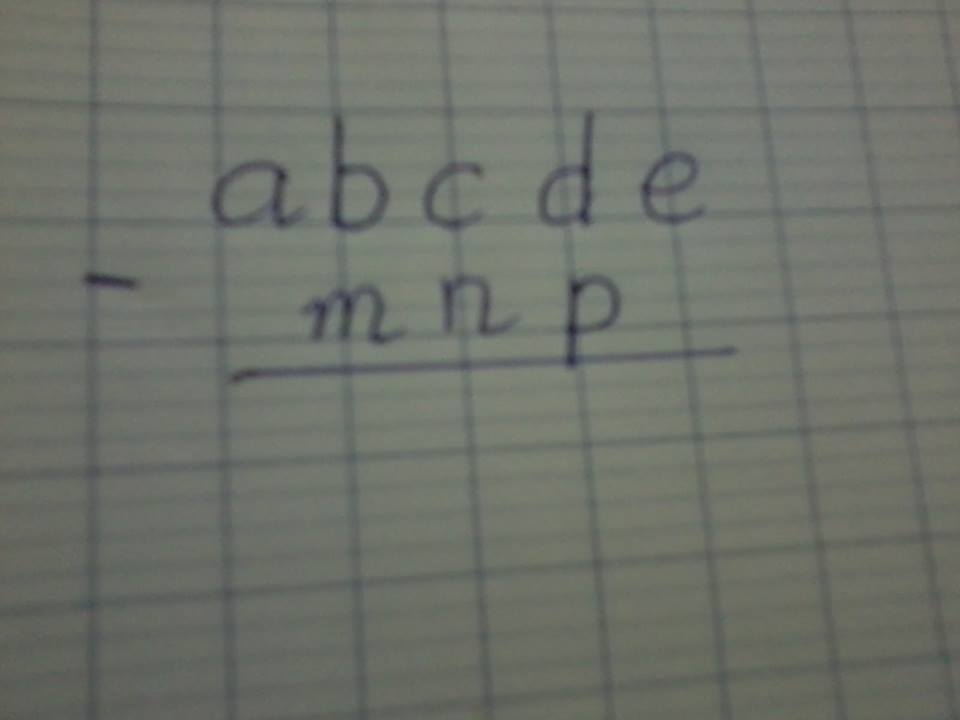 a b c d e
- m n p